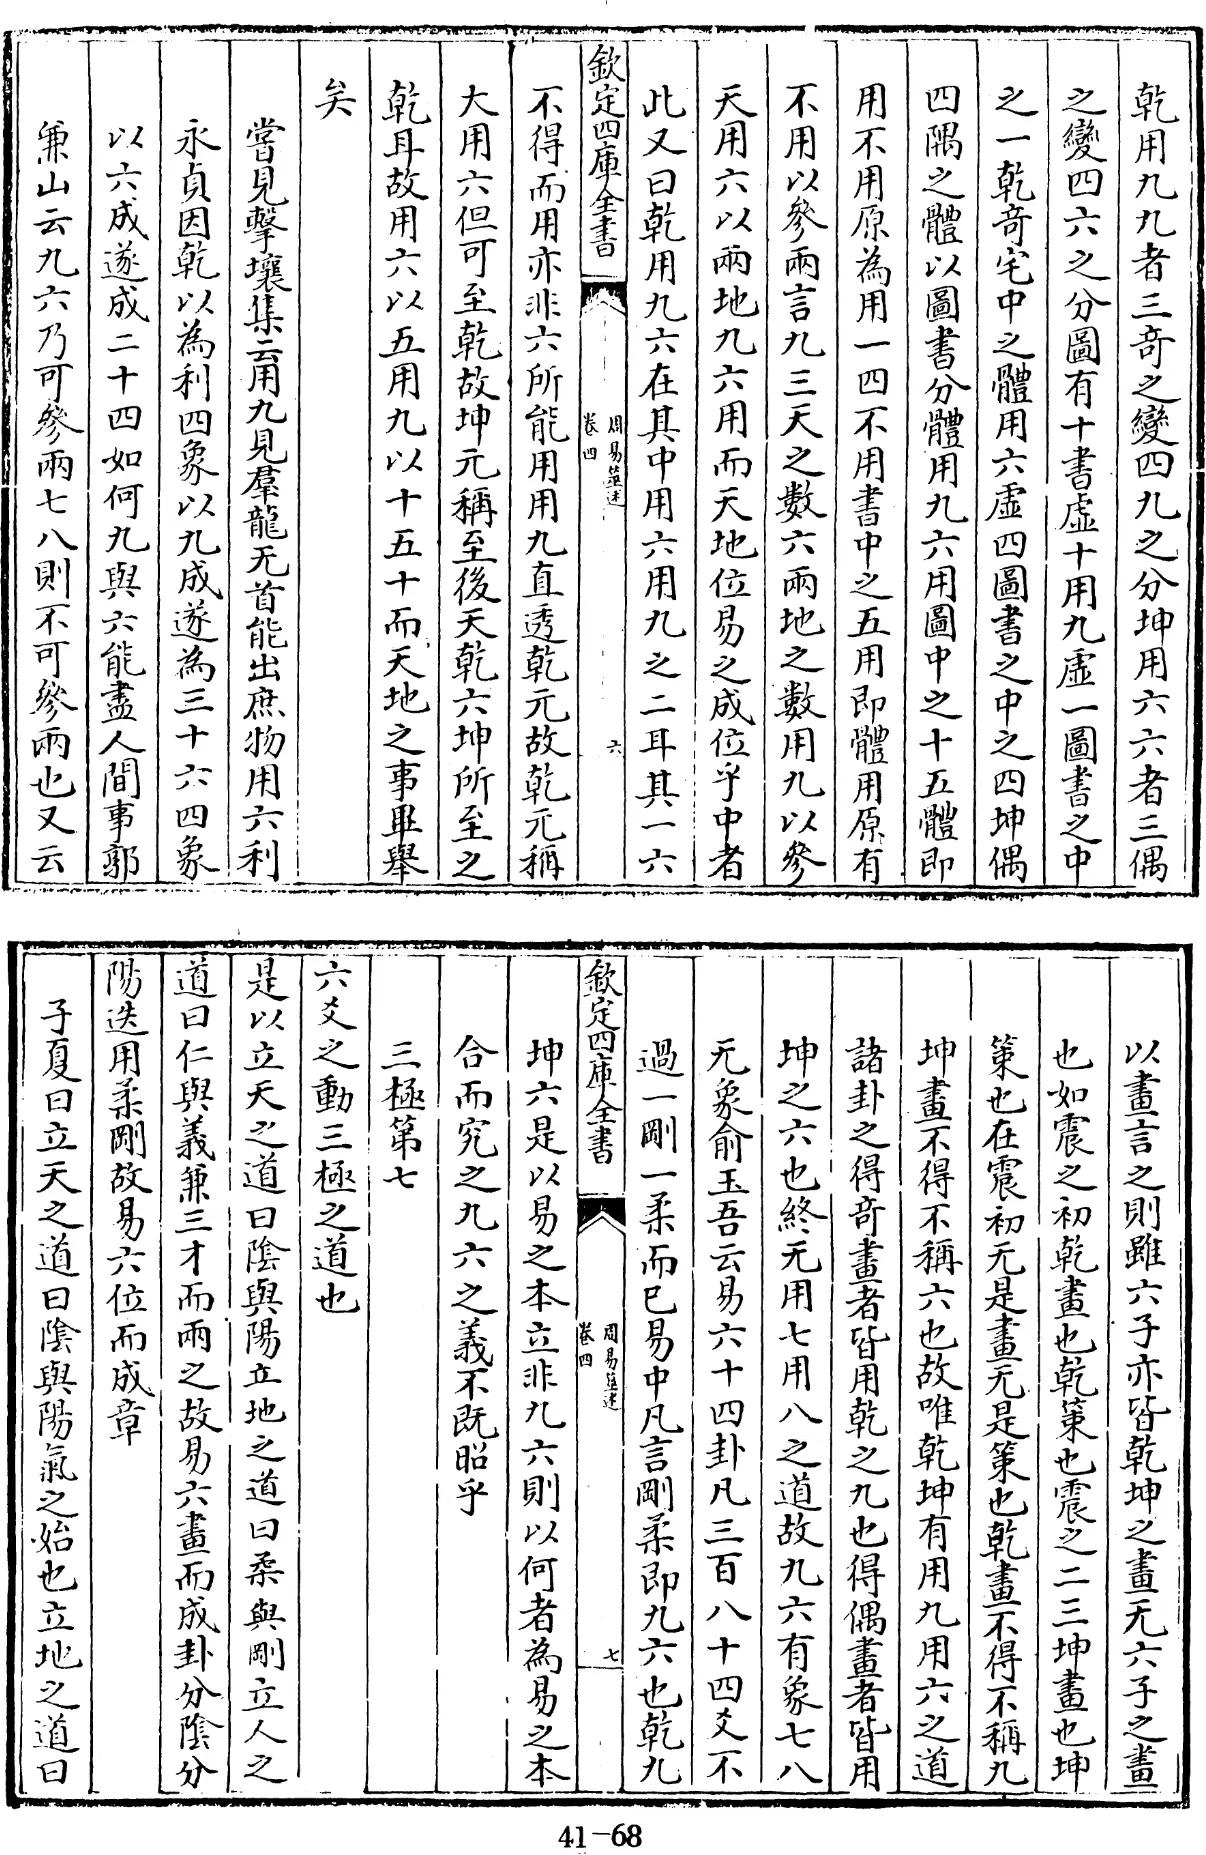 乾用九九者三奇之變四九之分坤用六六者三偶
之變四六之分圖有十書虛十用九虛一圖書之中
之一乾奇宅中之體用六虛四圖書之中之四坤偶
四隅之體以圖書分體用九六用圖中之十五體即
用不用原為用一四不用書中之五用即體用原有
不用以參兩言九三天之數六兩地之數用九以參
天用六以兩地九六用而天地位易之成位乎中者
此又曰乾用九六在其中用六用九之二耳其一六
欽定四庫全書
周易筮述
卷四
六
不得而用亦非六所能用用九直透乾元故乾元稱
大用六但可至乾故坤元稱至後天乾六坤所至之
乾耳故用六以五用九以十五十而天地之事畢舉
矣
嘗見擊壤集云用九見羣龍无首能出庶物用六利
永貞因乾以為利四象以九成遂為三十六四象
以六成遂成二十四如何九與六能盡人間事郭
兼山云九六乃可參兩七八則不可參兩也又云
以畫言之則雖六子亦皆乾坤之畫无六子之畫
也如震之初乾畫也乾策也震之二三坤畫也坤
策也在震初无是畫无是策也乾畫不得不稱九
坤畫不得不稱六也故唯乾坤有用九用六之道
諸卦之得奇畫者皆用乾之九也得偶畫者皆用
坤之六也終无用七用八之道故九六有象七八
无象俞玉吾云易六十四卦凡三百八十四爻不
過一剛一柔而已易中凡言剛柔即九六也乾九
欽定四庫全書
周易筮述
卷四
七
坤六是以易之本立非九六則以何者為易之本
合而究之九六之義不既昭乎
三極第七
六爻之動三極之道也
是以立天之道曰陰與陽立地之道曰柔與剛立人之
道曰仁與義兼三才而兩之故易六畫而成卦分陰分
陽迭用柔剛故易六位而成章
子夏曰立天之道曰陰與陽氣之始也立地之道曰
41-68